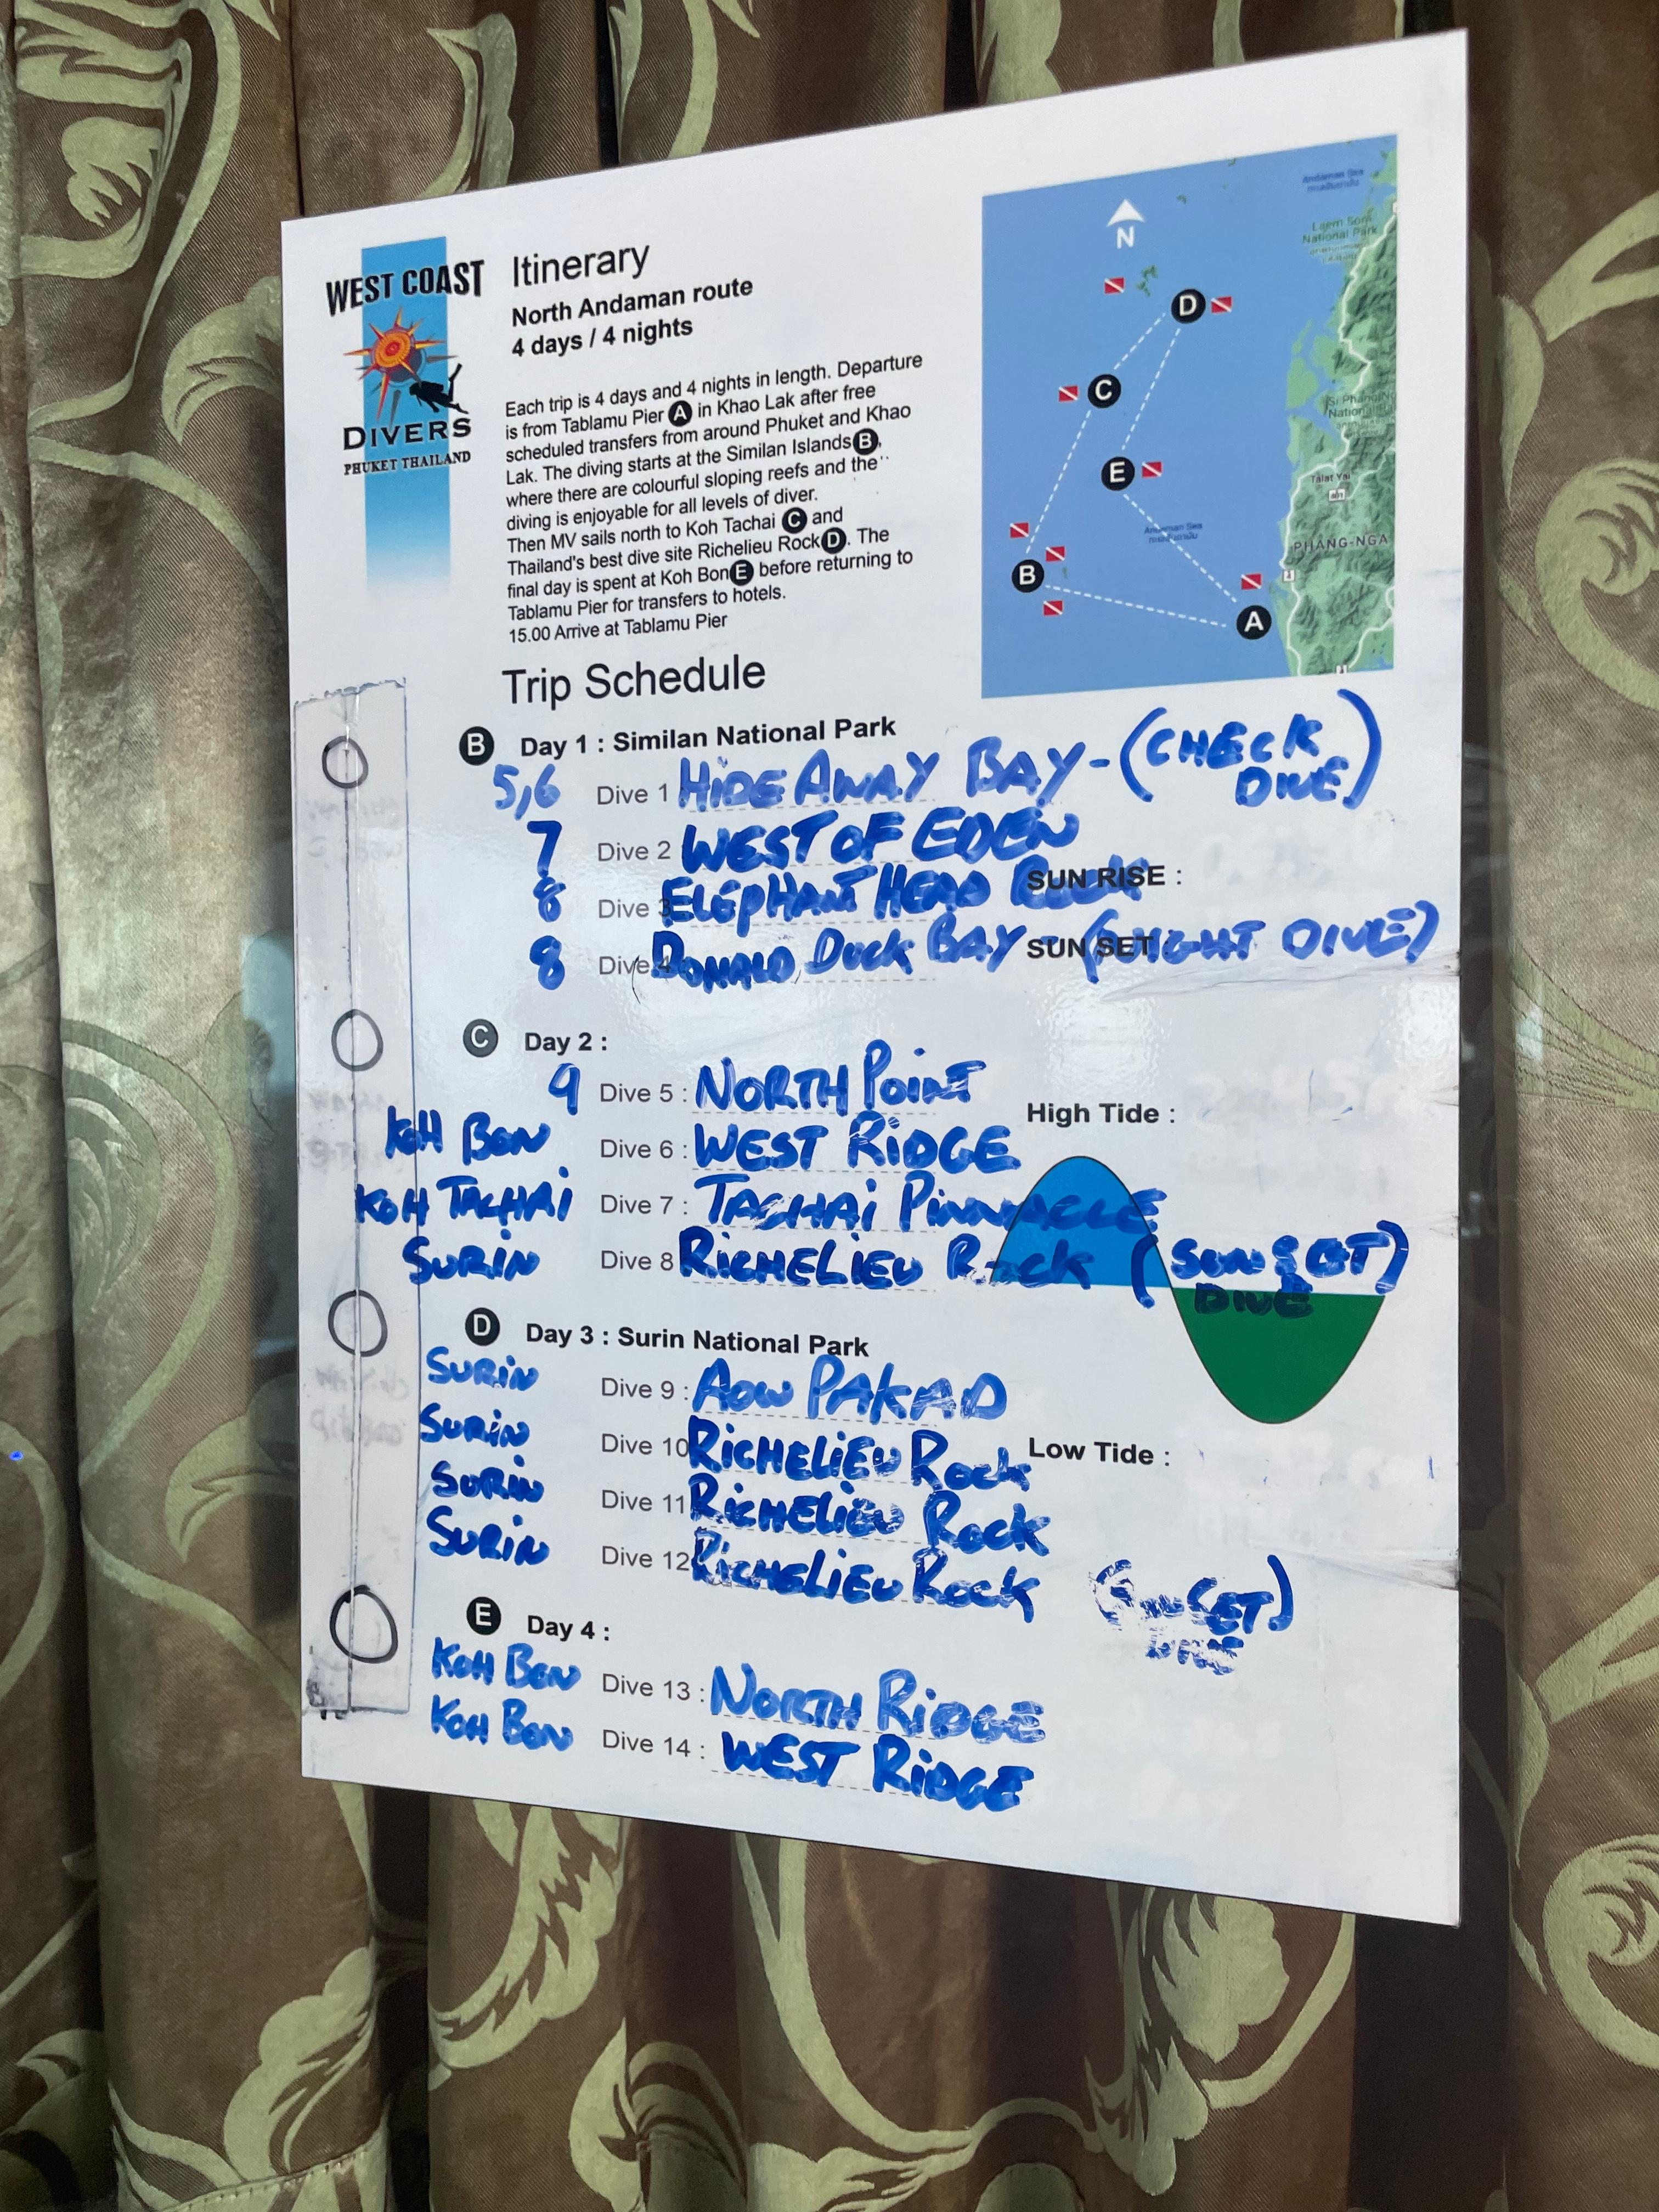 WEST COAST
DIVERS
PHUKET THAILAND
Itinerary
North Andaman route
4 days / 4 nights
Each trip is 4 days and 4 nights in length. Departure
is from Tablamu Pier A in Khao Lak after free
scheduled transfers from around Phuket and Khao
Lak. The diving starts at the Similan Islands B,
where there are colourful sloping reefs and the
diving is enjoyable for all levels of diver.
Then MV sails north to Koh Tachai C and
Thailand's best dive site Richelieu Rock D. The
final day is spent at Koh Bon E before returning to
Tablamu Pier for transfers to hotels.
15.00 Arrive at Tablamu Pier
N
Andaman Sea
Laem Son
National Park
D
C
Si Phang
National
E
Talat Yai
401
Andaman Sea
PHANG-NGA
4
B
A
4
Trip Schedule
B Day 1 : Similan National Park
5,6 Dive 1 HIDE AWAY BAY - (CHECK DIVE)
7 Dive 2 WEST OF EDEN
SUN RISE :
8 Dive 3 ELEPHANT HEAD ROCK
8 Dive 4 DONALD DUCK BAY - (NIGHT DIVE)
SUN SET
C Day 2 :
9 Dive 5 : NORTH POINT
High Tide :
KOH BON Dive 6 : WEST RIDGE
KOH TACHAI Dive 7 : TACHAI PINNACLE
SURIN Dive 8 RICHELIEU ROCK (SUNSET) DIVE
D Day 3 : Surin National Park
SURIN Dive 9 : AOW PAKAD
SURIN Dive 10 RICHELIEU ROCK
Low Tide :
SURIN Dive 11 RICHELIEU ROCK
SURIN Dive 12 RICHELIEU ROCK (SUNSET) DIVE
E Day 4 :
KOH BON Dive 13 : NORTH RIDGE
KOH BON Dive 14 : WEST RIDGE